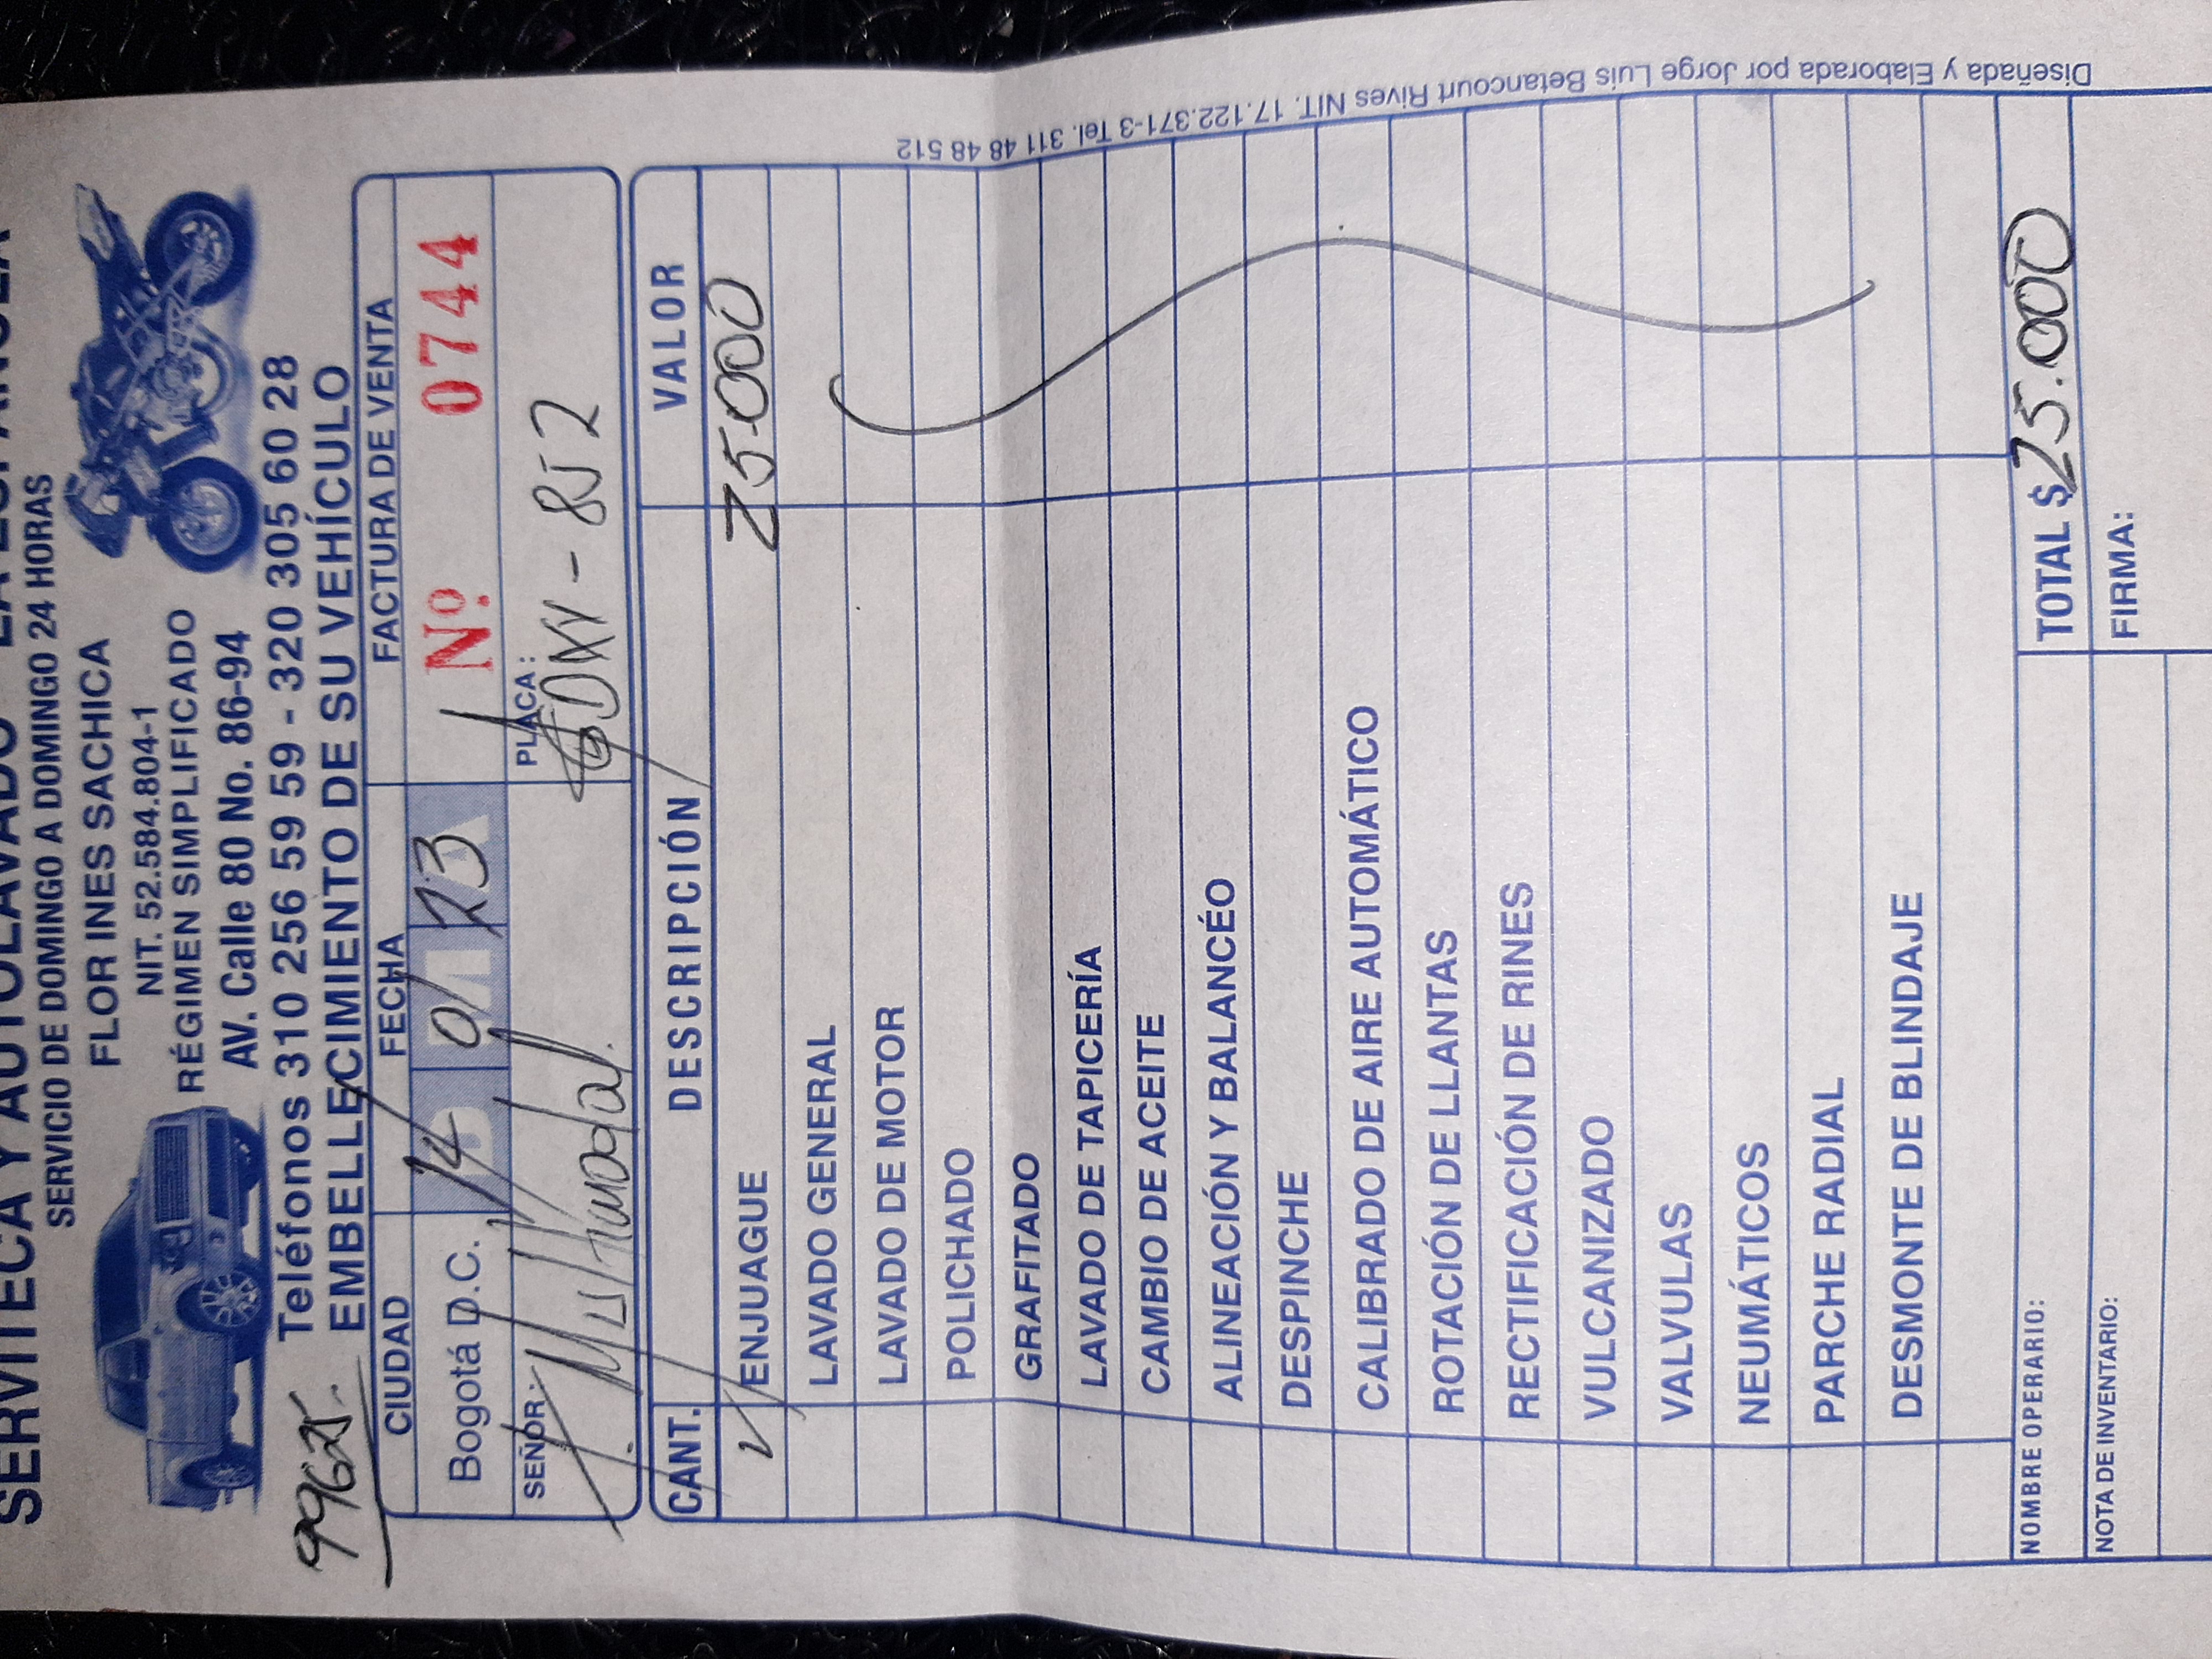 SERVITECA Y AUTOLAVADO
SERVICIO DE DOMINGO A DOMINGO 24 HORAS
FLOR INES SACHICA
NIT. 52.584.804-1
RÉGIMEN SIMPLIFICADO
AV. Calle 80 No. 86-94
Teléfonos 310 256 59 59 - 320 305 60 28
EMBELLECIMIENTO DE SU VEHÍCULO
99625.
CIUDAD FECHA FACTURA DE VENTA
Bogotá D.C. 14 01 23 Nº 0744
SEÑOR: PLACA:
CANT. DESCRIPCIÓN VALOR
ENJUAGUE 25.000
LAVADO GENERAL
LAVADO DE MOTOR
POLICHADO
GRAFITADO
LAVADO DE TAPICERÍA
CAMBIO DE ACEITE
ALINEACIÓN Y BALANCÉO
DESPINCHE
CALIBRADO DE AIRE AUTOMÁTICO
ROTACIÓN DE LLANTAS
RECTIFICACIÓN DE RINES
VULCANIZADO
VALVULAS
NEUMÁTICOS
PARCHE RADIAL
DESMONTE DE BLINDAJE
NOMBRE OPERARIO: TOTAL $ 25.000
NOTA DE INVENTARIO: FIRMA:
Diseñada y Elaborada por Jorge Luis Betancourt Rives NIT. 17.122.371-3 Tel. 311 48 48 512